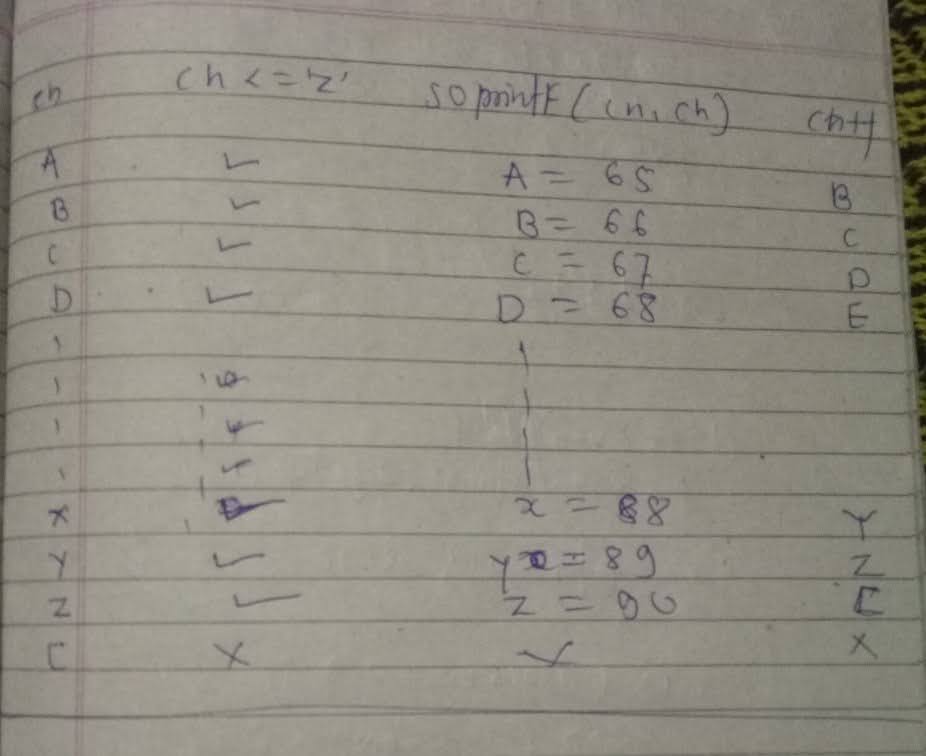 ch ch <= 'Z' so printf (ch, ch) ch++
A ✓ A = 65 B
B ✓ B = 66 C
C ✓ C = 67 D
D ✓ D = 68 E
X x = 88 Y
Y ✓ y = 89 Z
Z ✓ Z = 90 [
[ X X